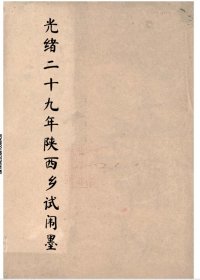 光绪二十九年陕西乡试闱墨